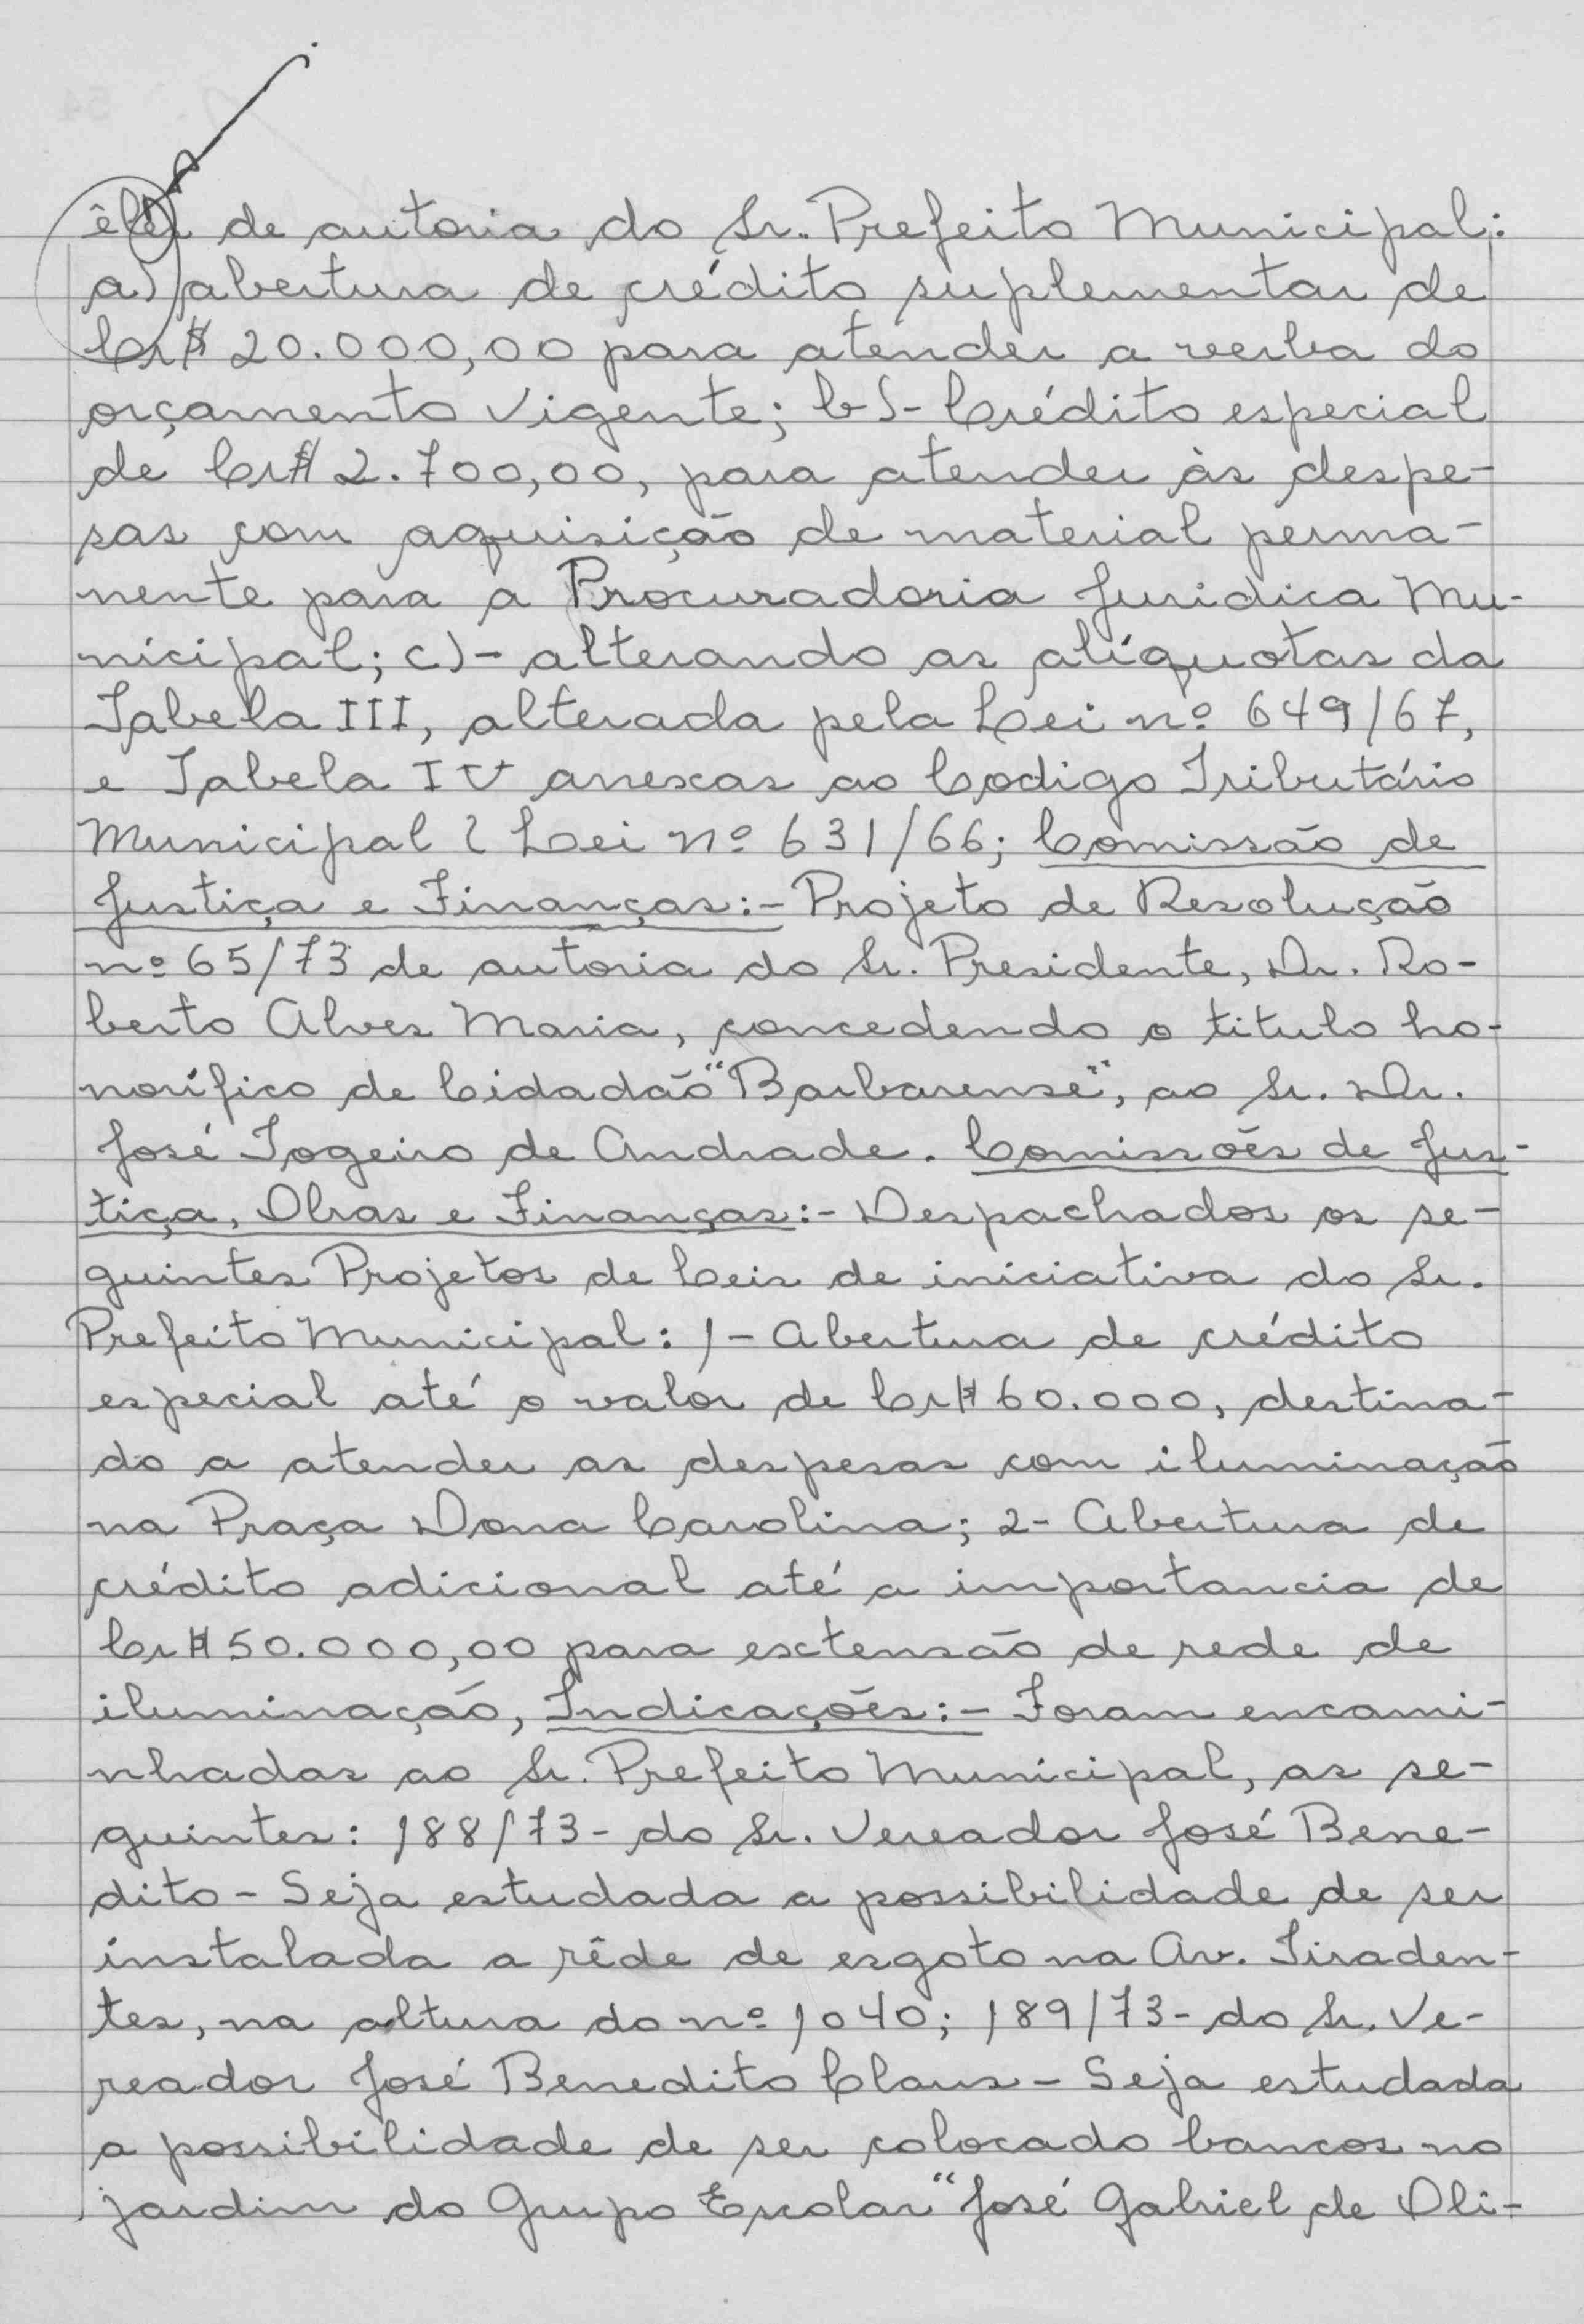 êles de autoria do Sr. Prefeito Municipal:
a) abertura de crédito suplementar de
Cr$ 20.000,00 para atender a verba do
orçamento vigente; b)- Crédito especial
de Cr$ 2.700,00, para atender às despe-
sas com aquisição de material perma-
nente para a Procuradoria Juridica Mu-
nicipal; c)- alterando as alíquotas da
Tabela III, alterada pela Lei nº 649/67,
e Tabela IV anexas ao Codigo Tributário
Municipal ( Lei nº 631/66; Comissão de
Justiça e Finanças:- Projeto de Resolução
nº 65/73 de autoria do Sr. Presidente, Dr. Ro-
berto Alves Maria, concedendo o titulo ho-
norífico de Cidadão "Barbarense", ao Sr. Dr.
José Togeiro de Andrade. Comissões de Jus-
tiça, Obras e Finanças:- Despachados os se-
guintes Projetos de Leis de iniciativa do Sr.
Prefeito Municipal: 1- Abertura de crédito
especial até o valor de Cr$ 60.000, destina-
do a atender as despesas com iluminação
na Praça Dona Carolina; 2- Abertura de
crédito adicional até a importancia de
Cr$ 50.000,00 para extensão de rede de
iluminação, Indicações:- Foram encami-
nhadas ao Sr. Prefeito Municipal, as se-
guintes: 188/73- do Sr. Vereador José Bene-
dito - Seja estudada a possibilidade de ser
instalada a rêde de esgoto na Av. Tiraden-
tes, na altura do nº 1040; 189/73- do Sr. Ve-
reador José Benedito Claus - Seja estudada
a possibilidade de ser colocado bancos no
jardim do Grupo Escolar "José Gabriel de Oli-